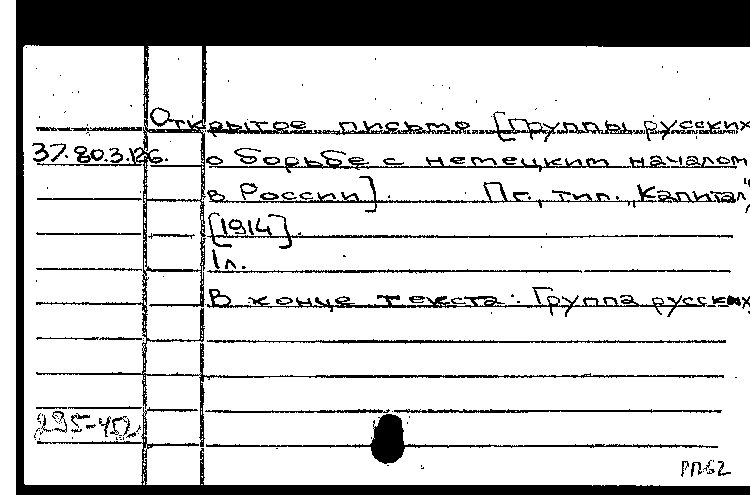 Открытое письмо [Группы русских
37.80.3.126. о борьбе с немецким началом
в России]. Пг., тип. „Капитал",
[1914].
1л.
В конце текста: Группа русских
295-452